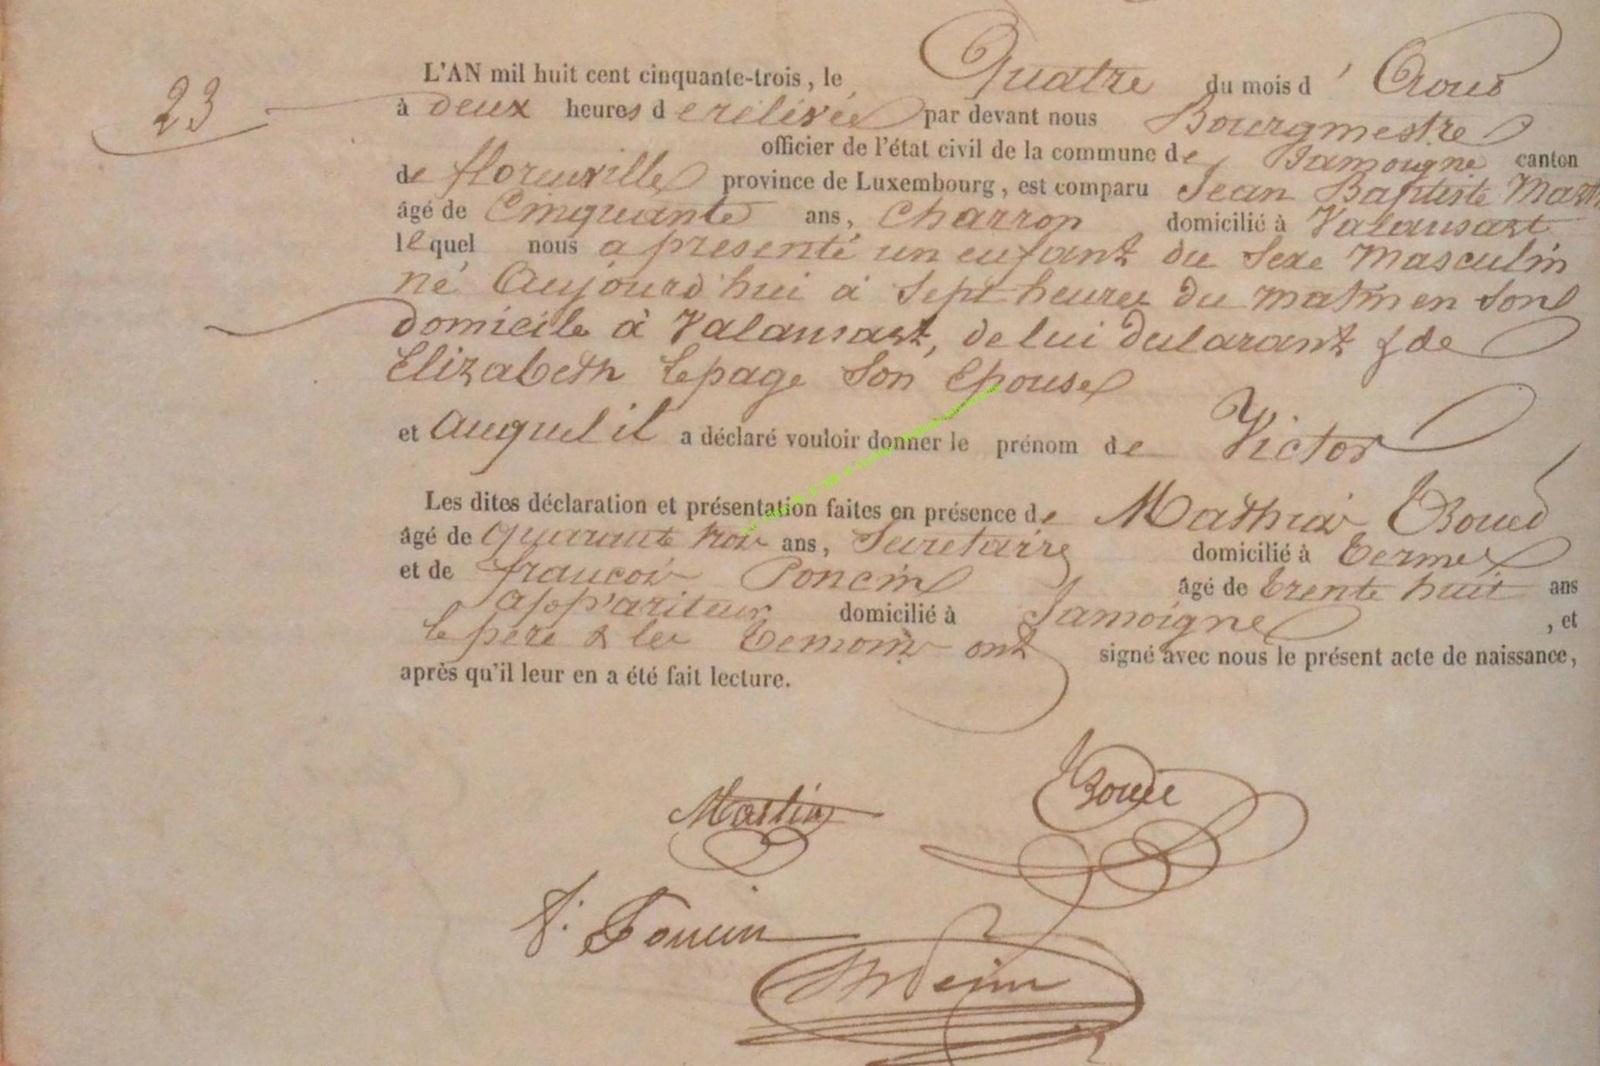 23
L'AN mil huit cent cinquante-trois, le Quatre du mois d'Aoust
à deux heures de rélévée par devant nous Bourgmestre
officier de l'état civil de la commune de Jamoigne canton
de florenville province de Luxembourg, est comparu Jean Baptiste Mart
âgé de Cinquante ans, Charron domicilié à Valansart
lequel nous a présenté un enfant du Sexe Masculin
né Aujourd'hui à Sept heures du matin en Son
domicile à Valansart, de lui déclarant & de
Elizabeth Lepage Son Epouse
et Auquel il a déclaré vouloir donner le prénom de Victor
Les dites déclaration et présentation faites en présence de Mathias Boued
âgé de quarante trois ans, Secretaire domicilié à Termes
et de françois Poncin âgé de trente huit ans
appariteur domicilié à Jamoigne, et
le père & les temoins ont signé avec nous le présent acte de naissance,
après qu'il leur en a été fait lecture.
Martin
f. Poncin